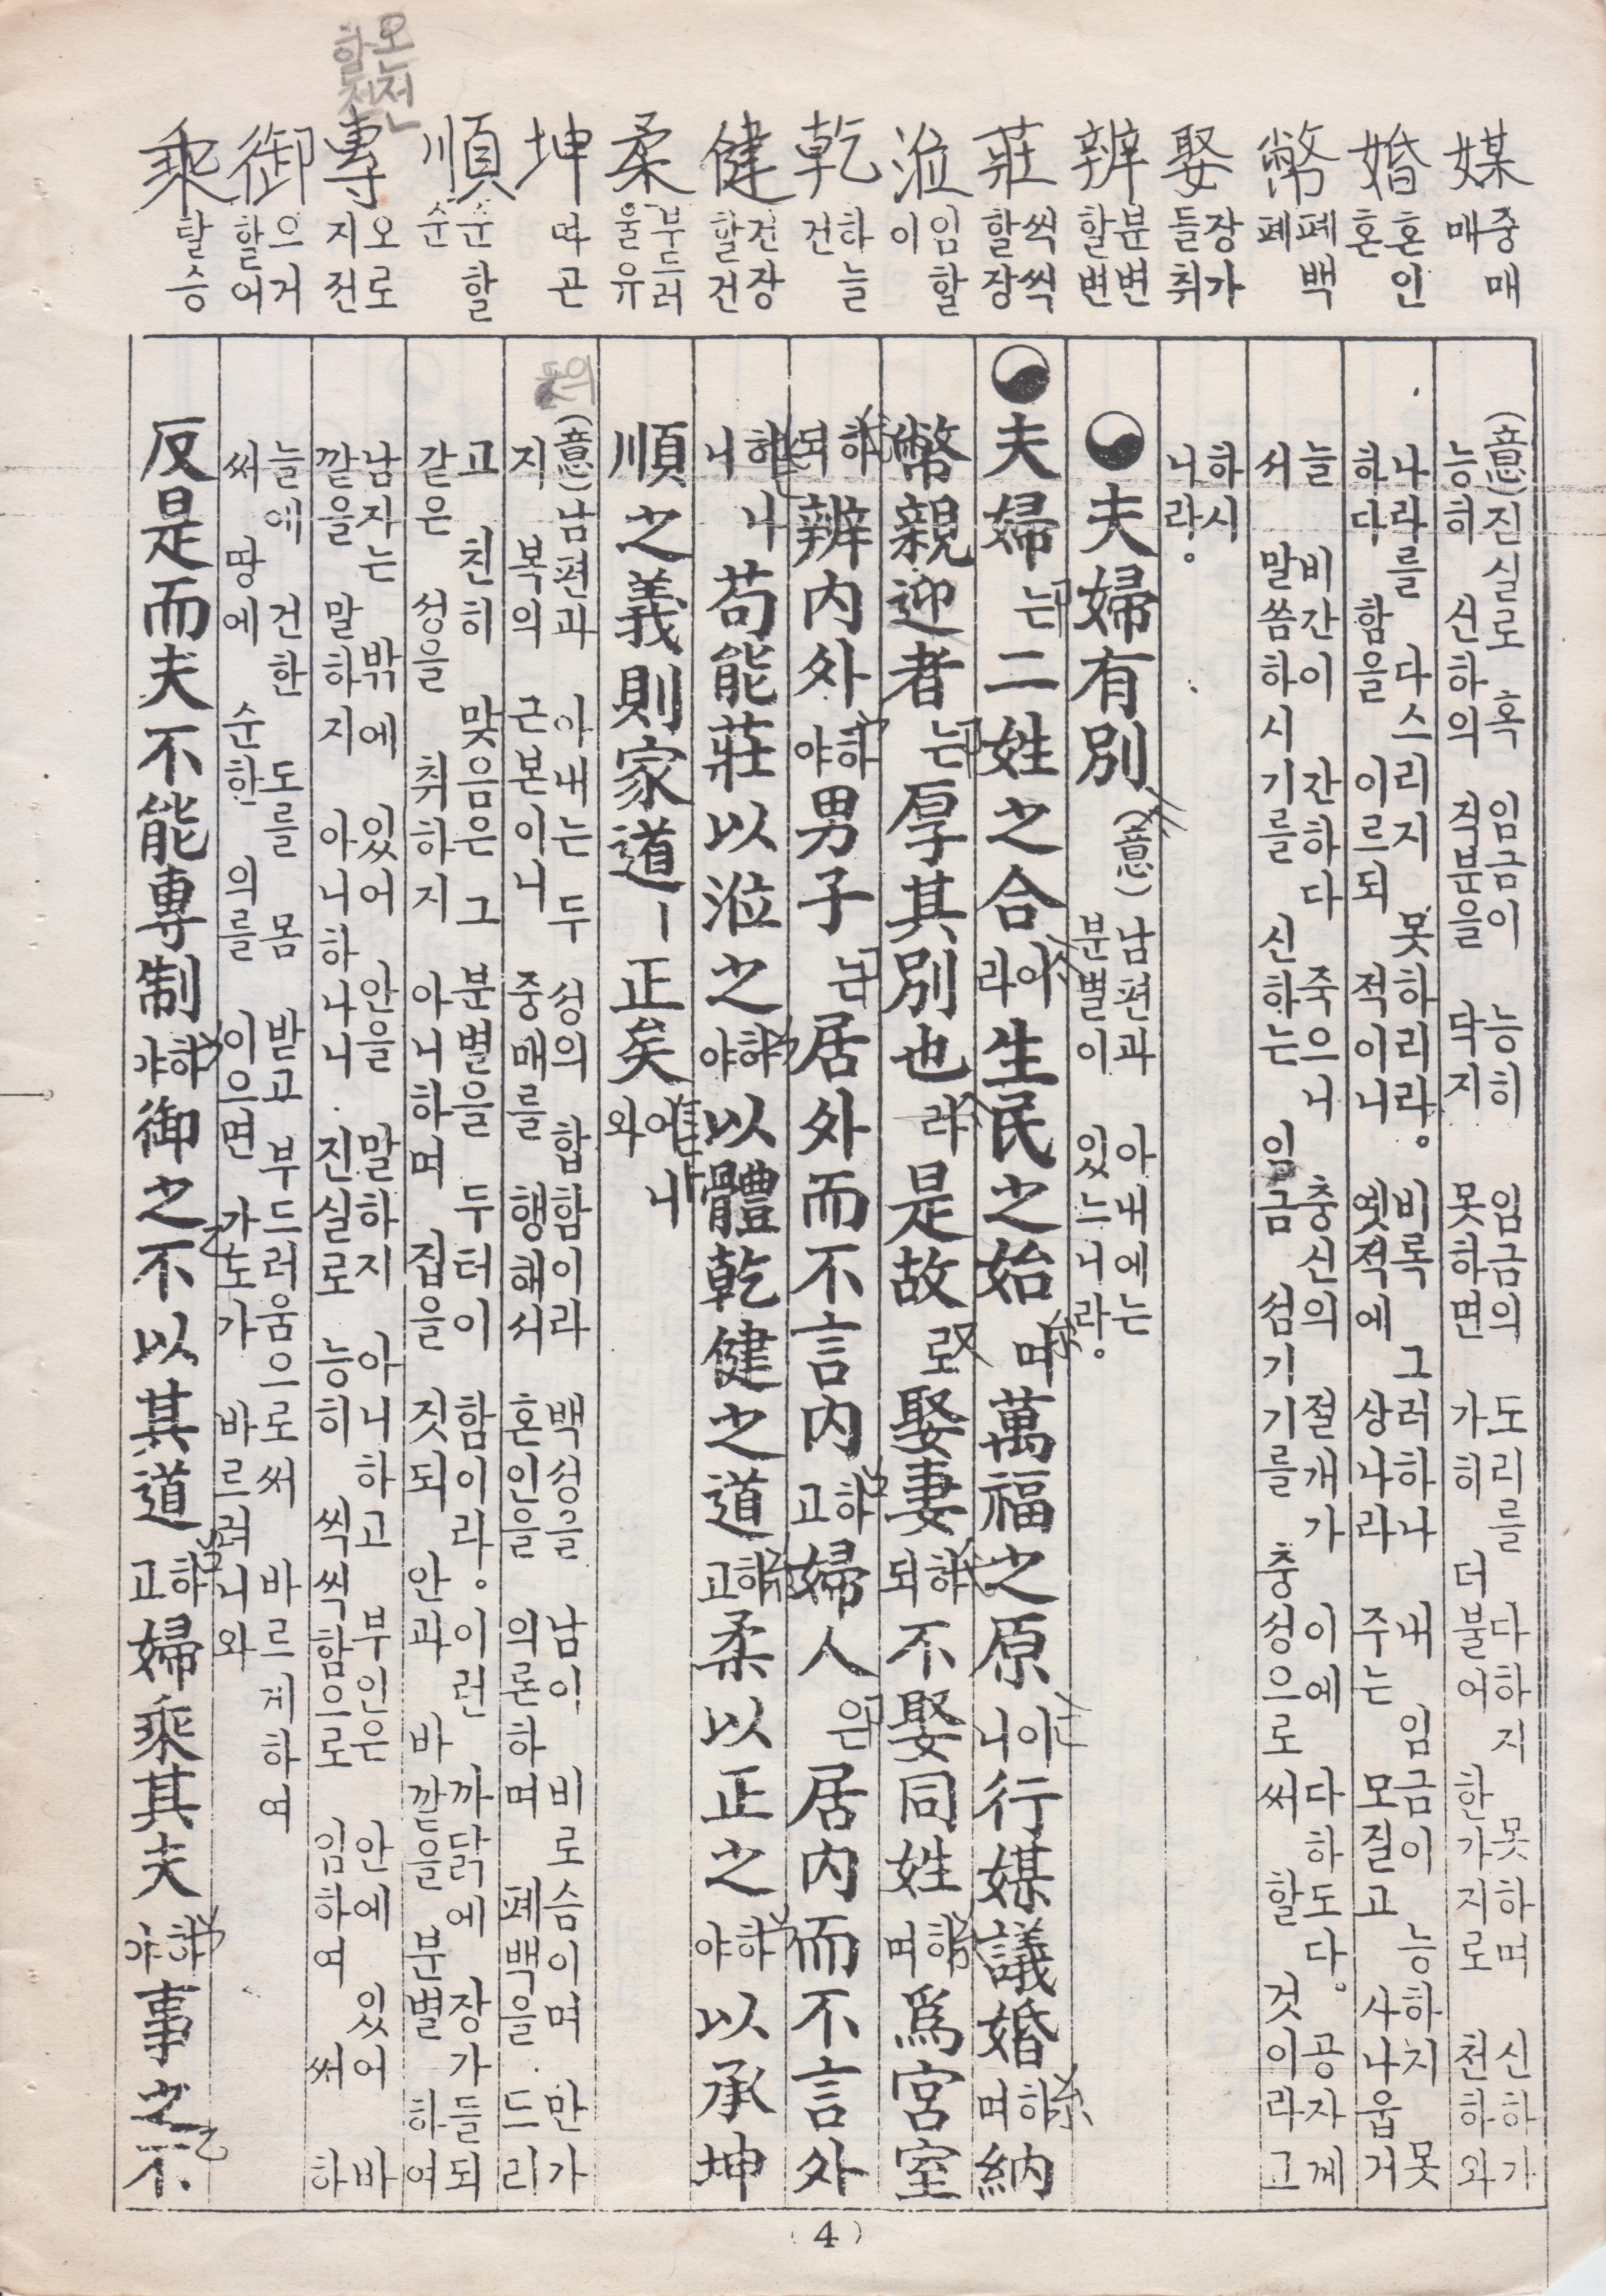 오로전
할전
媒 중매 매
婚 혼인 혼
幣 폐백 폐
娶 장가들 취
辨 분변할 변
莊 씩씩할 장
涖 임할 이
乾 하늘 건
健 건장할 건
柔 부드러울 유
坤 따 곤
順 순할 순
專 오로지 전
御 으거할 어
乘 탈 승
(意)진실로 혹 임금이 능히 임금의 도리를 다하지 못하며 신하가
능히 신하의 직분을 닦지 못하면 가히 더불어 한가지로 천하와
나라를 다스리지 못하리라。비록 그러하나 내 임금이 능하지 못
하다 함을 이르되 적이니 옛적에 상나라 주는 모질고 사나웁거
늘 비간이 간하다 죽으니 충신의 절개가 이에 다하도다。공자께
서 말씀하시기를 신하는 임금 섬기기를 충성으로 써 할 것이라고
하시
니라。
夫婦有別 (意) 남편과 아내에는
분별이 있느니라。
夫婦는 二姓之合이라 生民之始며 萬福之原이니 行媒議婚하며 納
幣親迎者는 厚其別也라 是故로 娶妻하되 不娶同姓하며 爲宮室
하되 辨內外하야 男子는 居外而不言內하고 婦人은 居內而不言外
하니 나 苟能莊以涖之하야 以體乾健之道하고 柔以正之하야 以承坤
順之義則家道ㅣ正矣어니와 나
(意)남편과 아내는 두 성의 합함이라 백성을 남이 비로슴이며 만가
지 복의 근본이니 중매를 행해서 혼인을 의론하며 폐백을 드리
고 친히 맞음은 그 분별을 두터이 함이라。이런 까닭에 장가들되
같은 성을 취하지 아니하며 집을 짓되 안과 바깥을 분별하여
남자는 밖에 있어 안을 말하지 아니하고 부인은 안에 있어 바
깥을 말하지 아니하나니 진실로 능히 씩씩함으로 임하여 써 하
늘에 건한 도를 몸 받고 부드러움으로써 바르게하여
써 땅에 순한 의를 이으면 가도가 바르려니와
反是而夫不能專制하야 御之不以其道하고 婦乘其夫하야 事之不
(4)